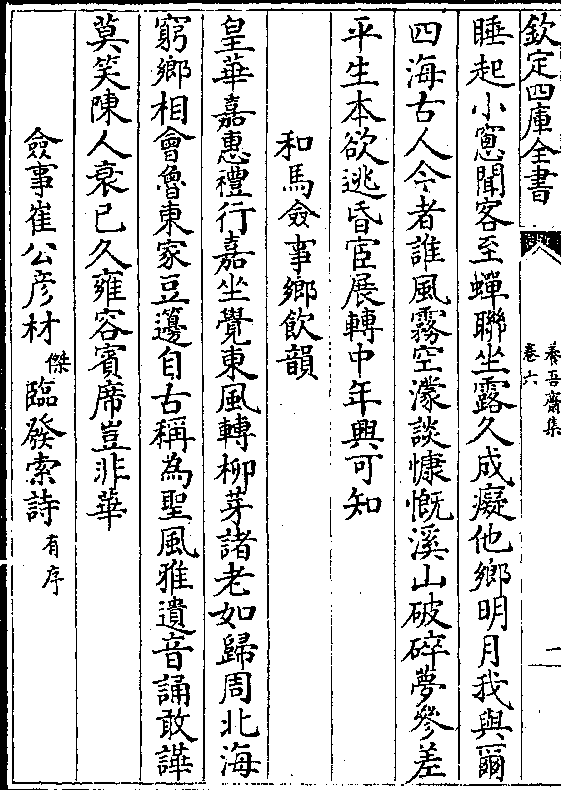 欽定四庫全書
養吾齋集
卷六
一
睡起小窻聞客至蟬聯坐露久成癡他鄉明月我與爾
四海古人今者誰風霧空濛談慷慨溪山破碎夢參差
平生本欲逃昏宦展轉中年興可知
和馬僉事鄉飲韻
皇華嘉惠禮行嘉坐覺東風轉柳芽諸老如歸周北海
窮鄉相會魯東家豆籩自古稱為聖風雅遺音誦敢譁
莫笑陳人衰已久雍容賓席豈非華
僉事崔公彦材傑臨發索詩有序